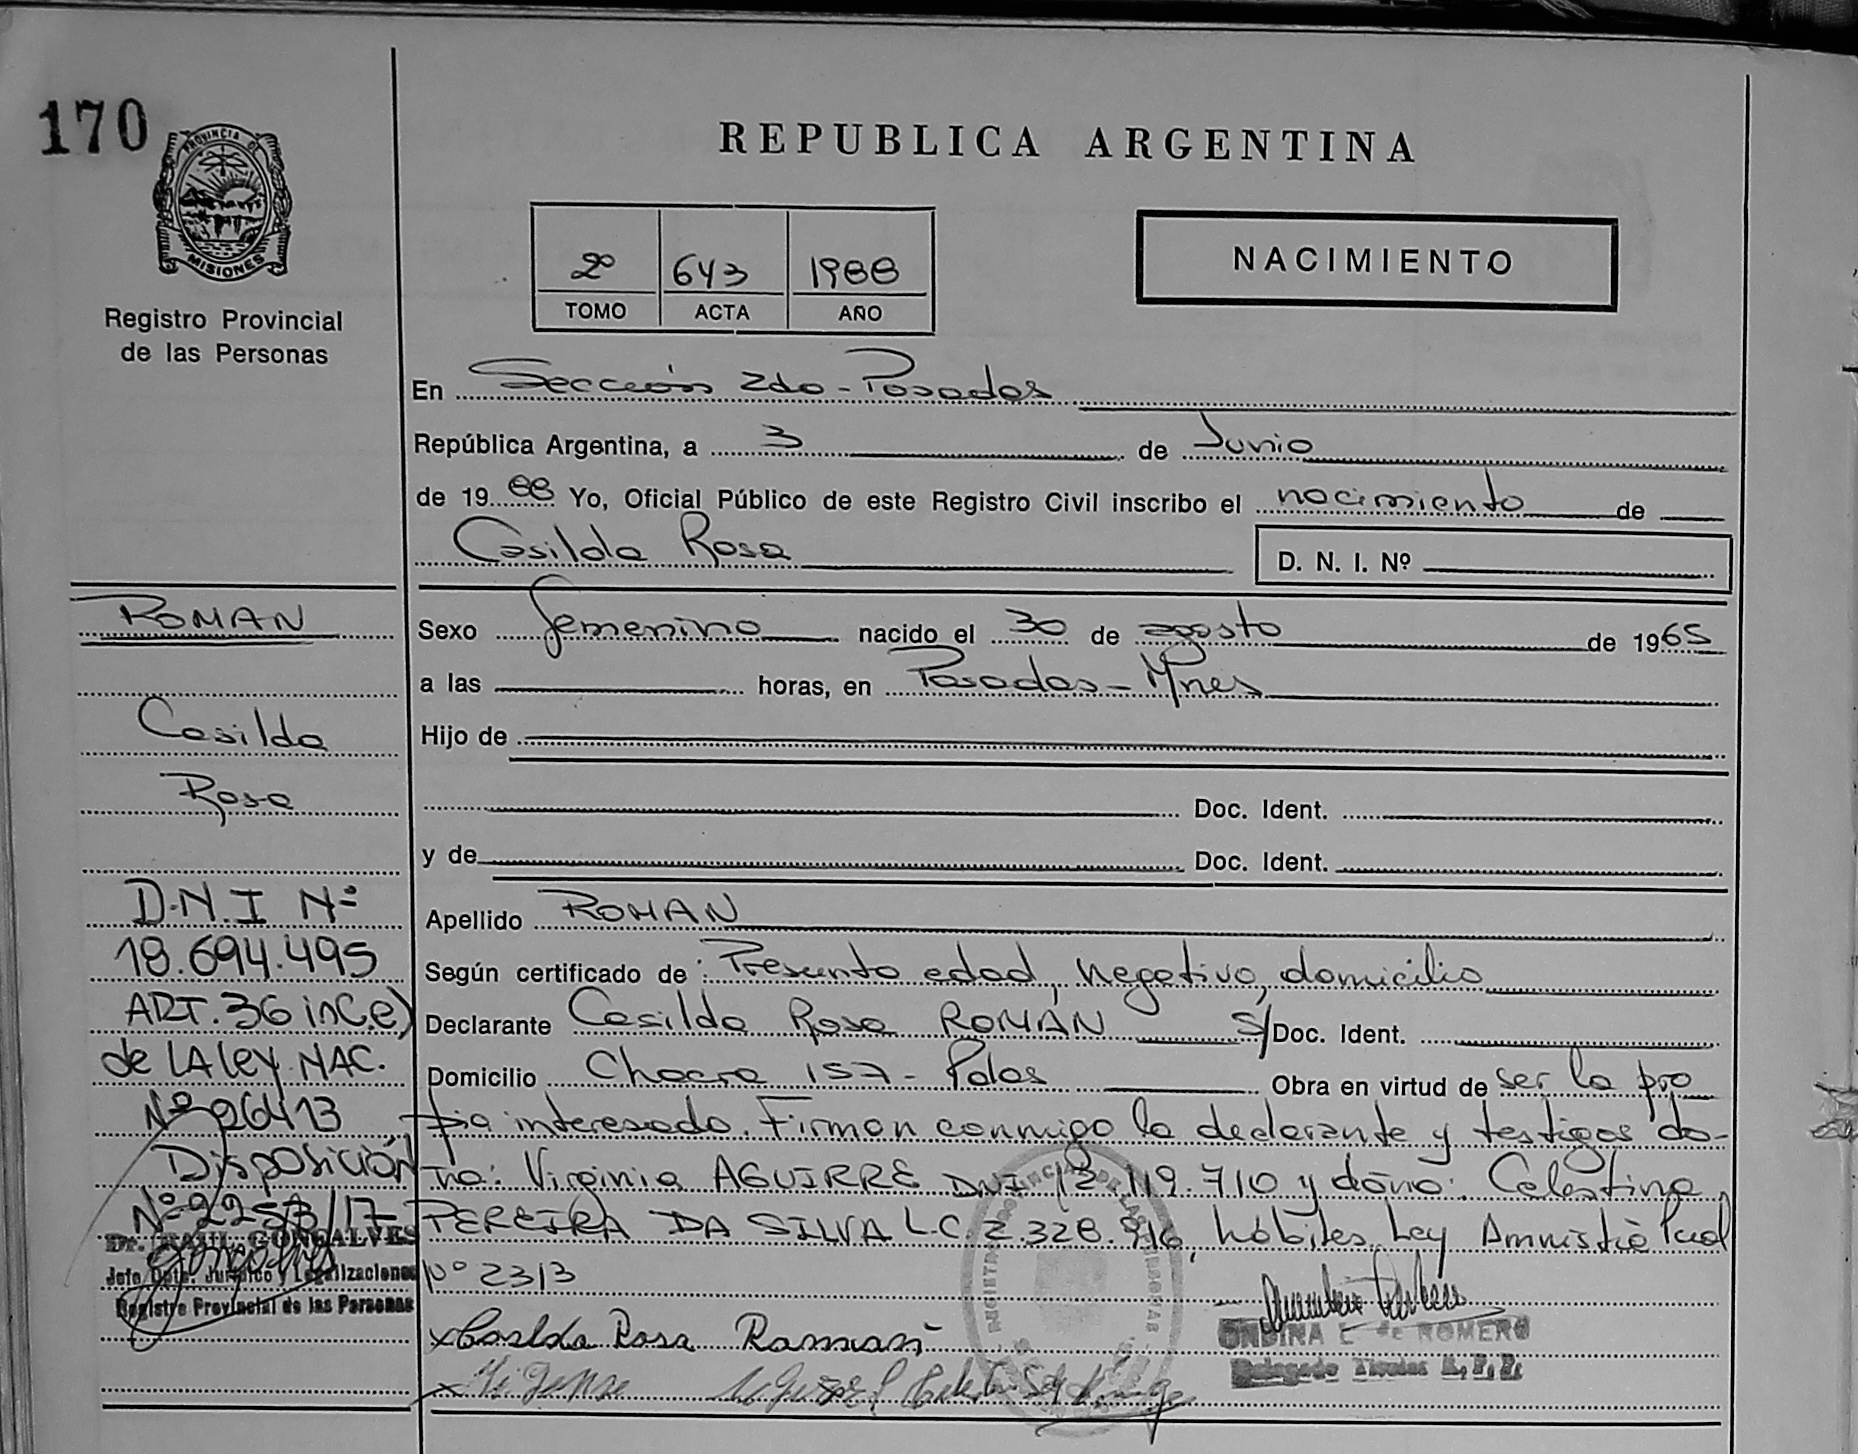 170
PROVINCIA DE
MISIONES
Registro Provincial
de las Personas
REPUBLICA ARGENTINA
2º 643 1988
TOMO ACTA AÑO
NACIMIENTO
En Sección 2da - Posadas
República Argentina, a 3 de Junio
de 19 88 Yo, Oficial Público de este Registro Civil inscribo el nacimiento de
Casilda Rosa
D. N. I. Nº
Sexo femenino nacido el 30 de agosto de 1965
a las horas, en Posadas - Mnes
Hijo de
Doc. Ident.
y de Doc. Ident.
Apellido ROMAN
Según certificado de: Presunta edad, negativo, domicilio
Declarante Casilda Rosa ROMÁN S/ Doc. Ident.
Domicilio Chacra 157 - Pdas Obra en virtud de ser la pro
pia interesada. Firman conmigo la declarante y testigos do-
ña: Virginia AGUIRRE DNI 12.119.710 y doña: Celestina
PEREIRA DA SILVA L.C. 2.328.916, hábiles, Ley Amnistía
Nº 2313
x Casilda Rosa Roman
ONDINA E. de ROMERO
Delegado Titular R.P.P.
ROMAN
Casilda
Rosa
D.N.I Nº
18.694.495
ART. 36 inC.e)
de LA ley NAC.
Nº 26413
Disposición
Nº 2253/17
Dr. RAUL GONÇALVES
Jefe Dpto. Jurídico y Legalizaciones
Registro Provincial de las Personas